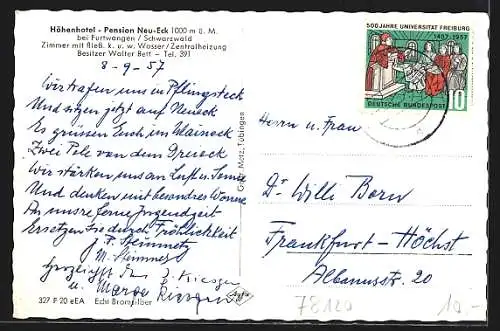 Höhenhotel - Pension Neu-Eck 1000 m ü. M.
bei Furtwangen / Schwarzwald
Zimmer mit fließ. k. u. w. Wasser / Zentralheizung
Besitzer Walter Bett - Tel. 391
8-9-57
Wir trafen uns im Pflingsteck
Und sitzen jetzt auf Neueck
Es grüssen Euch im Maineck
Zwei Pole von dem Dreieck
Wir stärken uns an Luft u. Sonne
Und denken mit besondrer Wonne
An unsre ferne Jugendzeit
Ersetzen sie durch Fröhlichkeit
J. F. Steinmetz
M. Steinmetz
u.
327 F 20 eEA Echt Bromsilber
Agfa
Gebr. Metz, Tübingen
500 JAHRE UNIVERSITÄT FREIBURG
1457-1957
DEUTSCHE BUNDESPOST
10
Herrn u. Frau
Dr. Willi Born
Frankfurt-Höchst
Albanusstr. 20
78120
10,-